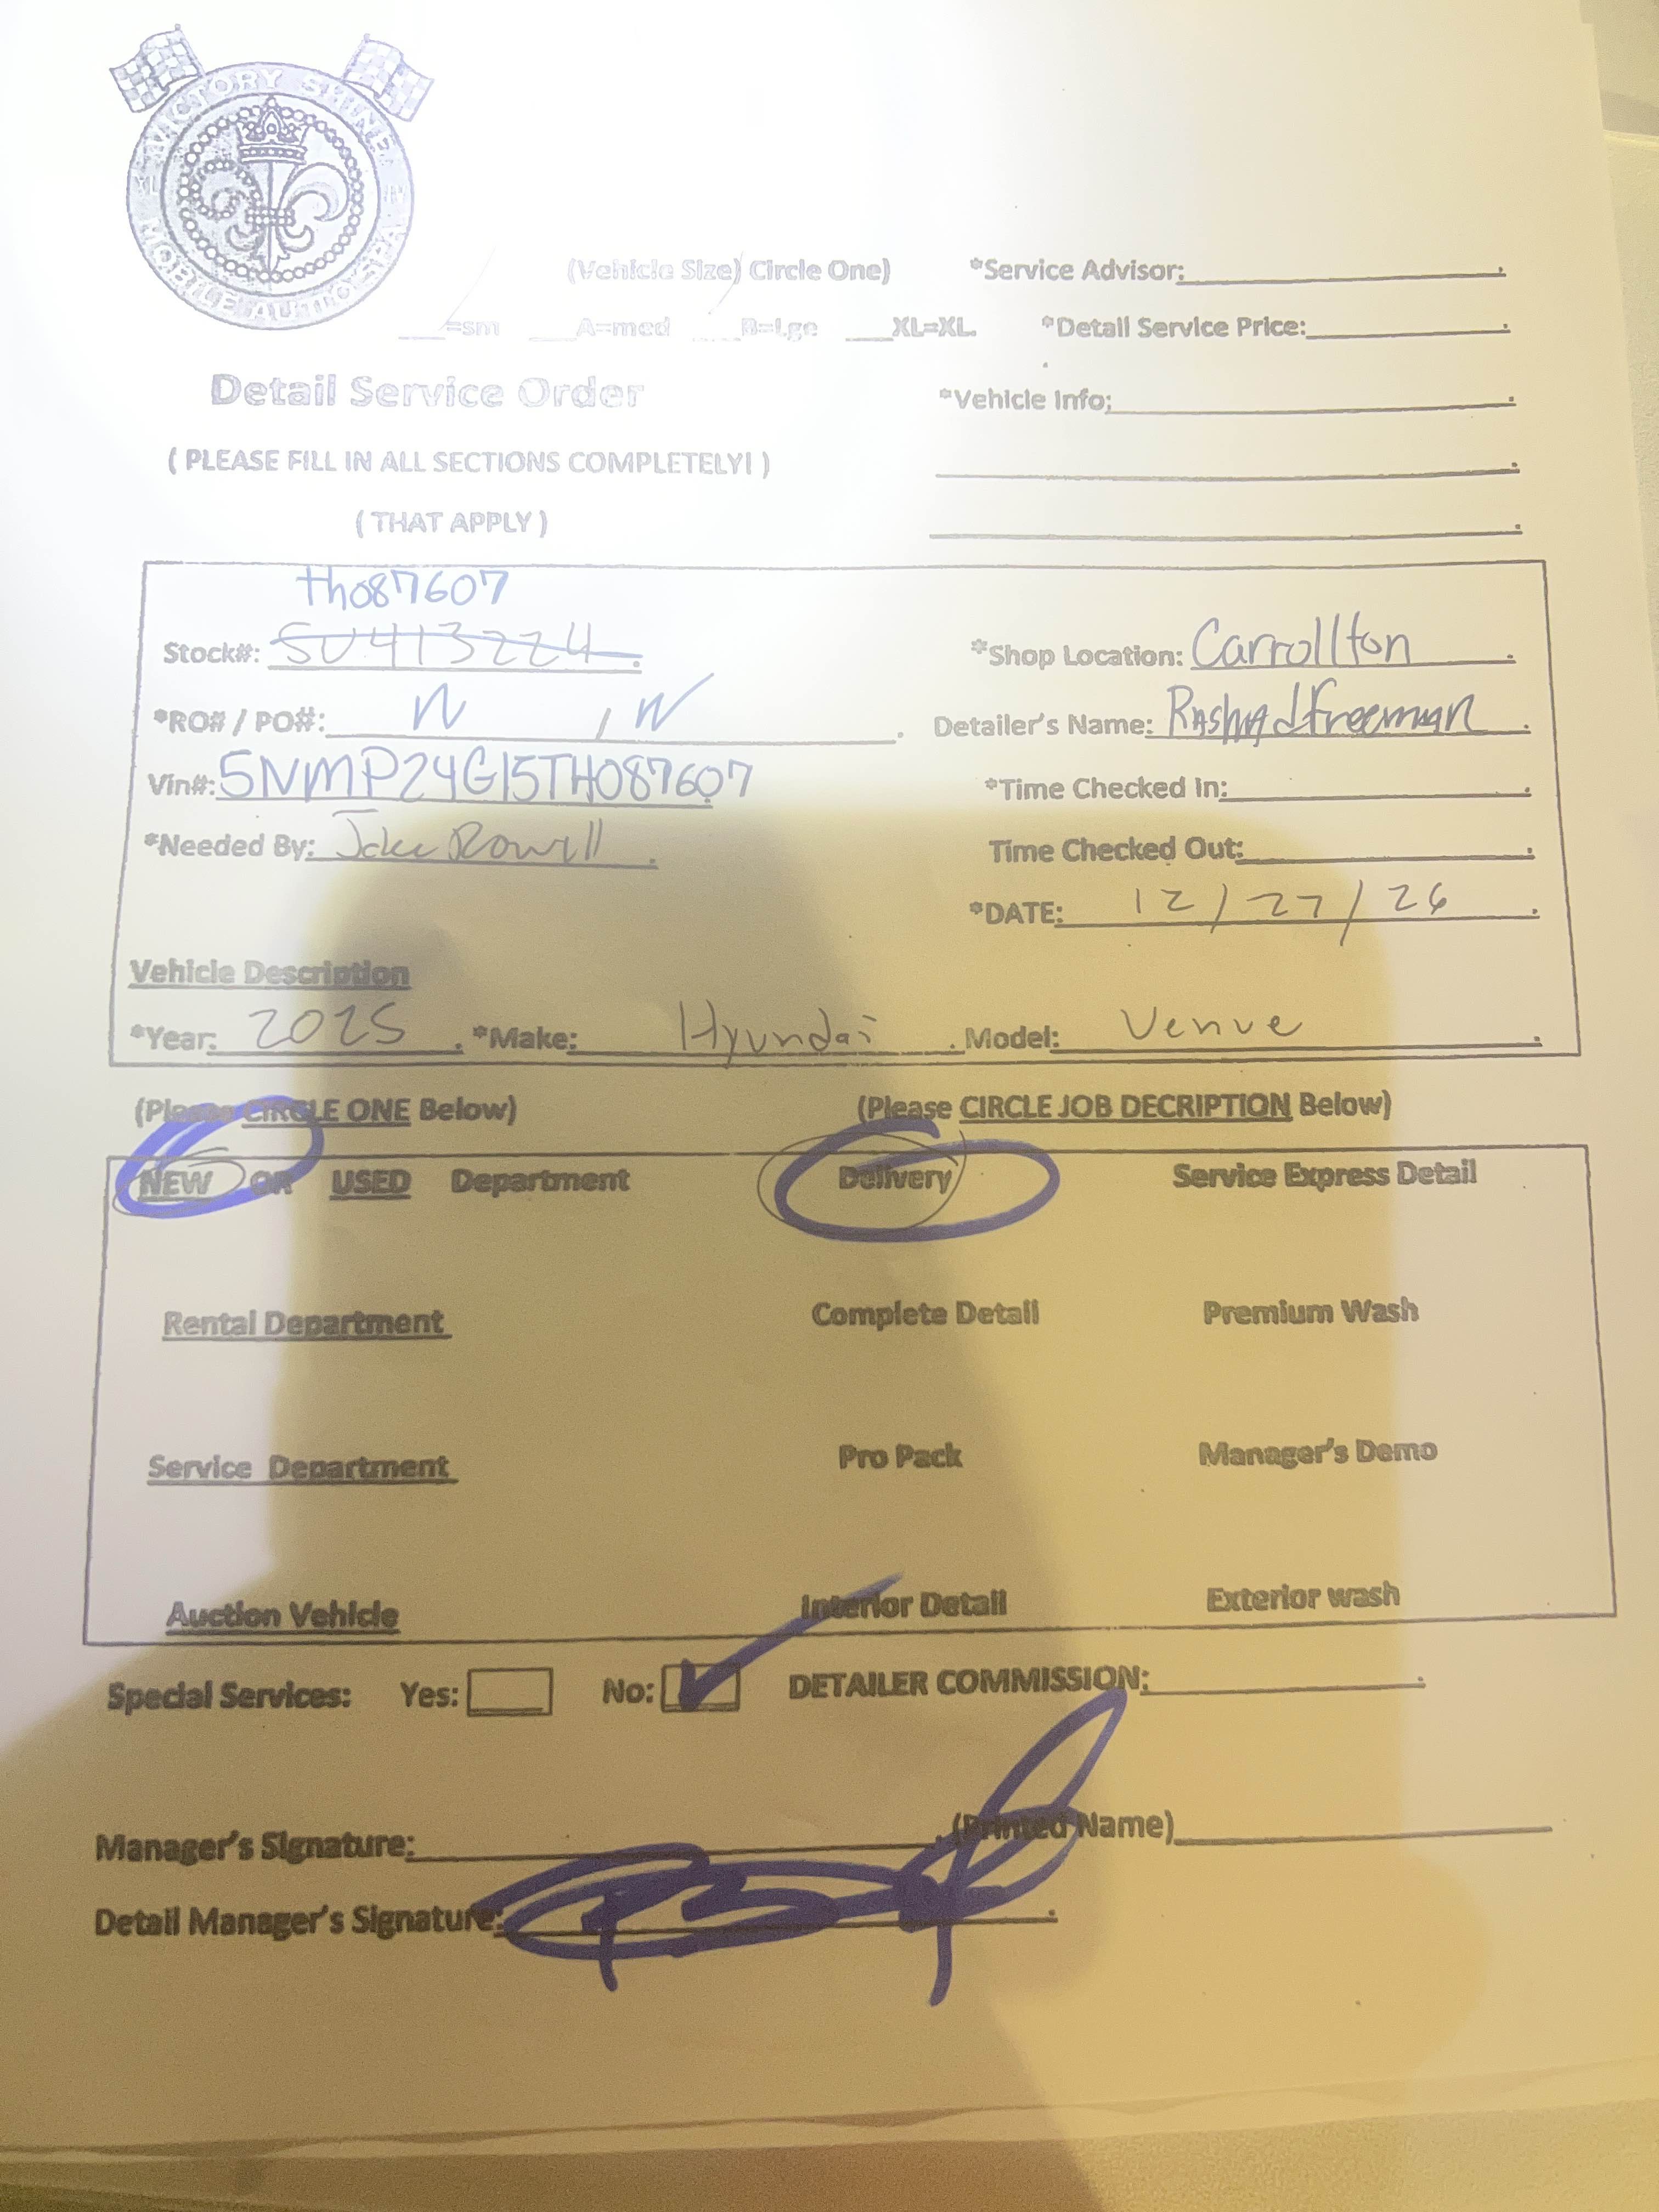 VICTORY SHINE
MOBILE AUTO SPA
(Vehicle Size/ Circle One)
*Service Advisor:
=sm A=med B=Lge XL=XL.
*Detail Service Price:
Detail Service Order
*Vehicle Info:
( PLEASE FILL IN ALL SECTIONS COMPLETELY! )
( THAT APPLY )
Th087607
Stock#: SU413224
*Shop Location: Carrollton
*RO# / PO#: N / N
Detailer's Name: Rashad Freeman
Vin#: 5NMP24G15TH087607
*Time Checked In:
*Needed By: Jake Rowell
Time Checked Out:
*DATE: 12/27/26
Vehicle Description
*Year: 2025 *Make: Hyundai Model: Venue
(Please CIRCLE ONE Below) (Please CIRCLE JOB DECRIPTION Below)
NEW OR USED Department Delivery Service Express Detail
Rental Department Complete Detail Premium Wash
Service Department Pro Pack Manager's Demo
Auction Vehicle Interior Detail Exterior wash
Special Services: Yes: No: DETAILER COMMISSION:
Manager's Signature: (Printed Name)
Detail Manager's Signature: